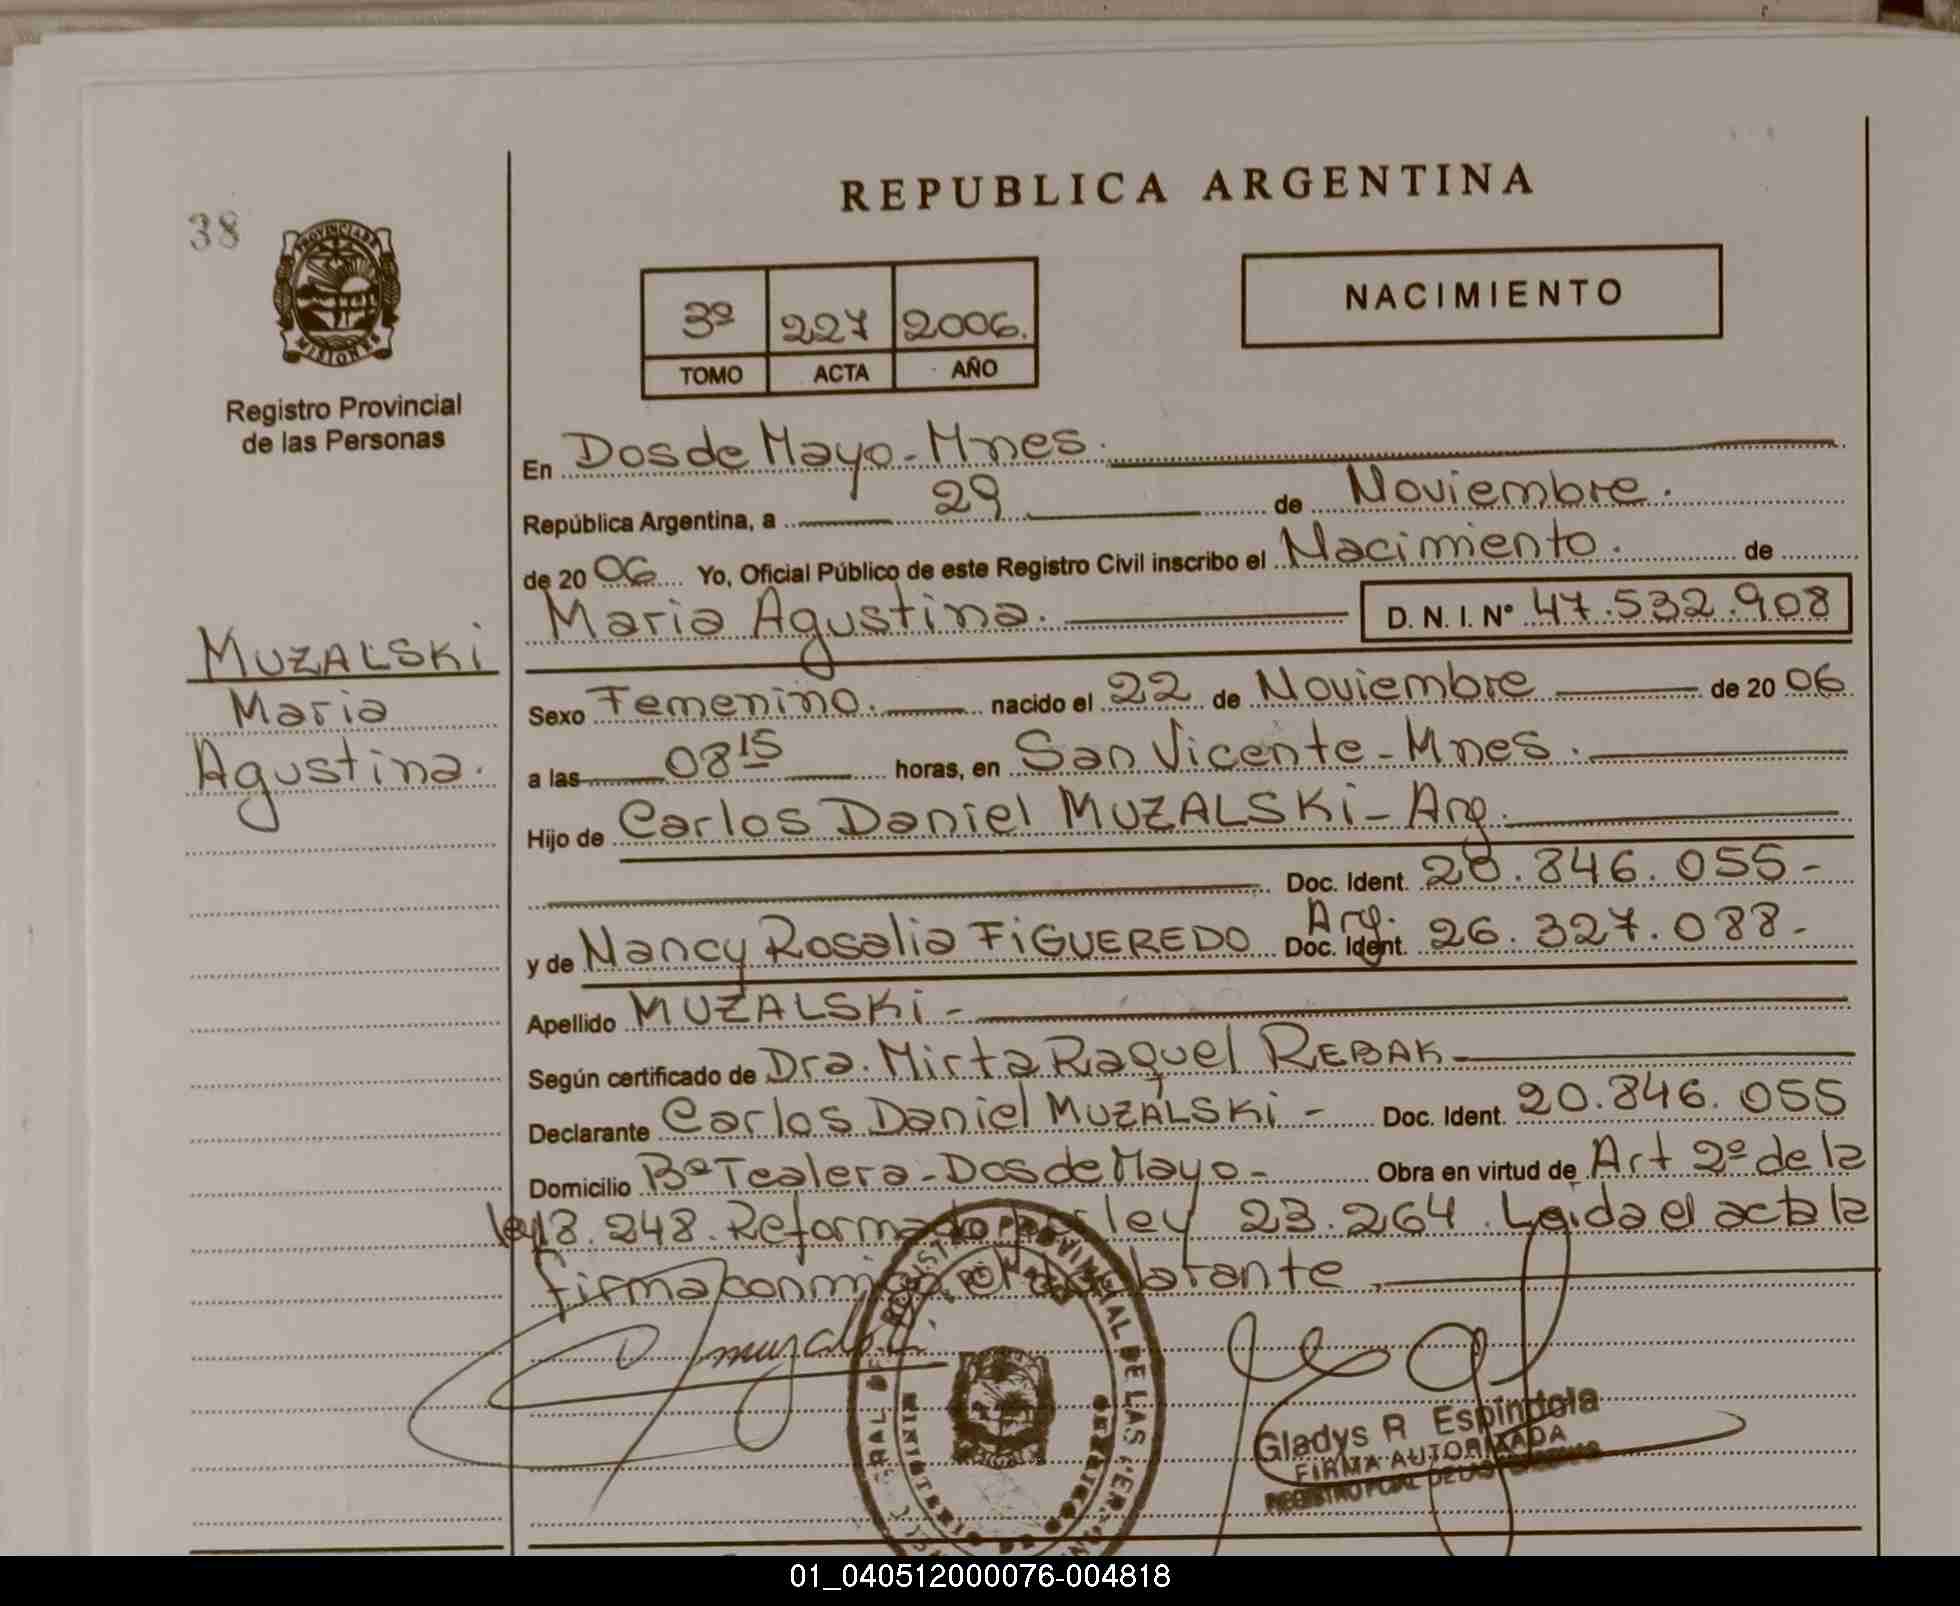 REPUBLICA ARGENTINA
38
PROVINCIA DE
MISIONES
Registro Provincial
de las Personas
NACIMIENTO
3º 227 2006.
TOMO ACTA AÑO
En Dos de Mayo - Mnes.
República Argentina, a 29 de Noviembre.
de 20 06 Yo, Oficial Público de este Registro Civil inscribo el Nacimiento. de
Maria Agustina. D. N. I. Nº 47.532.908
MUZALSKi
Maria
Agustina.
Sexo Femenino. nacido el 22 de Noviembre de 20 06
a las 08 15 horas, en San Vicente - Mnes.
Hijo de Carlos Daniel MUZALSKi - Arg.
Doc. Ident. 20.846.055-
y de Nancy Rosalia FiGUEREDO Arg. Doc. Ident. 26.327.088-
Apellido MUZALSKi -
Según certificado de Dra. Mirta Raquel REBAK
Declarante Carlos Daniel MUZALSKi - Doc. Ident. 20.846.055
Domicilio Bº Tealera - Dos de Mayo - Obra en virtud de Art 2º de la
ley 18.248. Reformado por ley 23.264. Leida el acta la
firma conmigo el declarante.
Gladys R Espindola
FIRMA AUTORIZADA
01_040512000076-004818